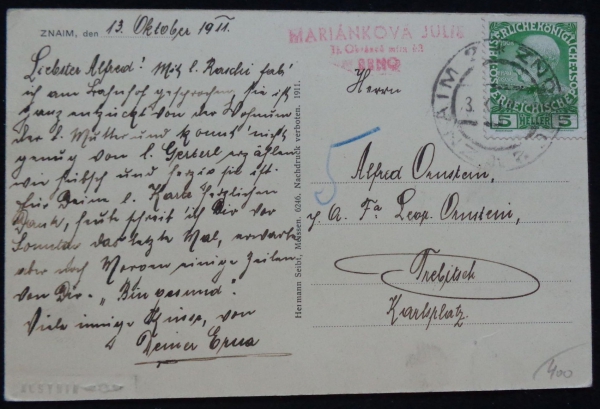 ZNAIM, den 13. Oktober 1911.
Liebster Alfred! Mit l. Raschi hab'
ich am Bahnhof gesprochen, sie ist
ganz entzückt von der Wohnung
der l. Mutter und konnt' nicht
genug von l. Gersterl erzählen
wie hübsch und sie ist.
Für Deine l. Karte herzlichen
Dank, heute schreib ich Dir vor
Sonntag das letzte Mal, erwarte
aber doch Morgen einige Zeilen
von Dir. "Bin gesund".
Viele innige Küsse, von
Deiner Erna
Hermann Seibt, Meissen. 6246. Nachdruck verboten. 1911.
MARIÁNKOVÁ JULIE
BRNO
KAISERLICHE KÖNIGLICHE
ÖSTERREICHISCHE POST
5 HELLER 5
ZNAIM 2
Herrn
5
Alfred Ornstein,
p. A. Fa Leop. Ornstein,
Trebitsch
Karlsplatz.
400